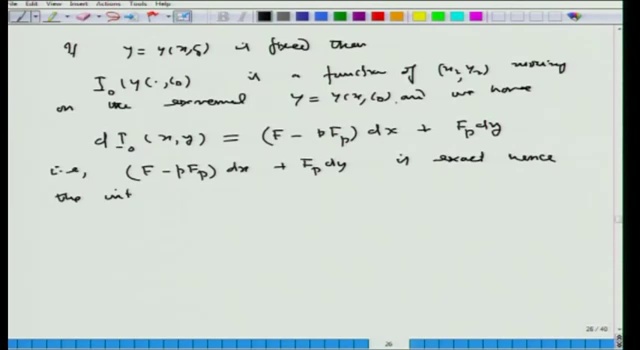 File Edit View Insert Actions Tools Help
If y = y(x,ς) is fixed then
I₀(y(·,ς₀) is a function of (x₂,y₂) moving
on the extremal y = y(x,ς₀) and we have
d I₀ (x,y) = (F - pFₚ) dx + Fₚdy
i.e, (F - pFₚ) dx + Fₚdy is exact hence
the int
26 / 40
26